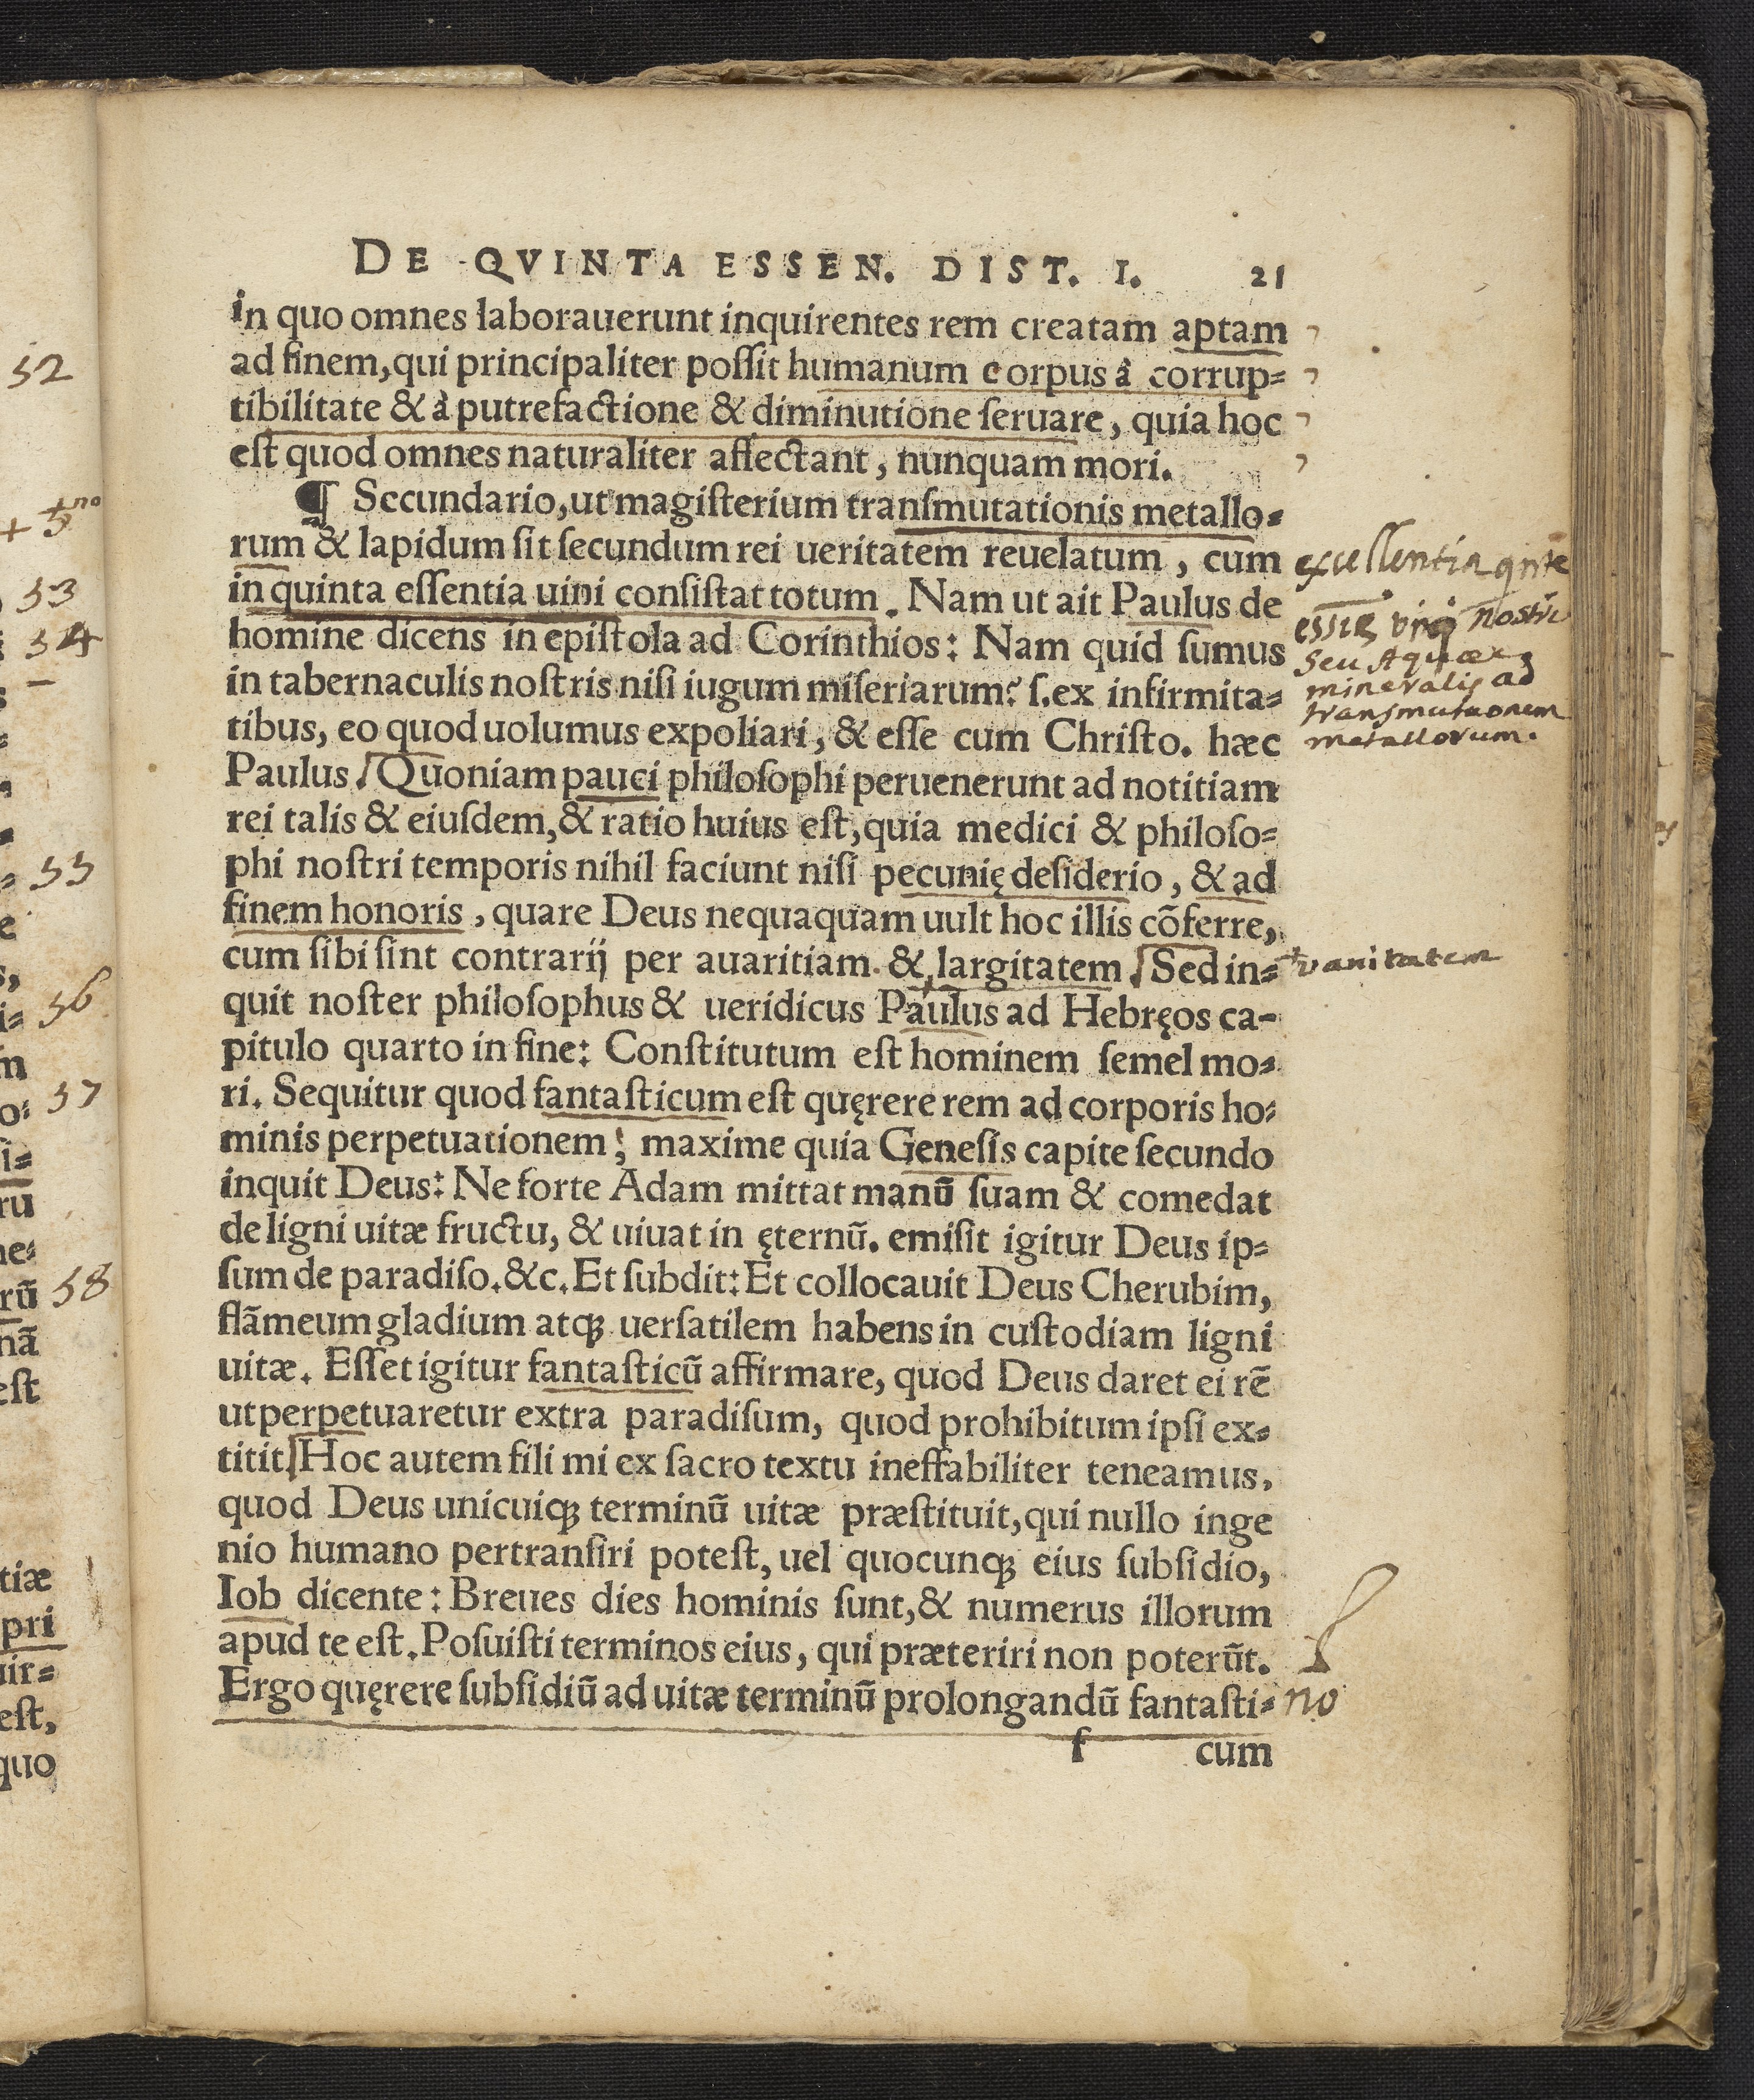 DE QVINTA ESSEN. DIST. I. 21
in quo omnes laborauerunt inquirentes rem creatam aptam
ad finem, qui principaliter poſſit humanum corpus â corrup⸗
tibilitate & à putrefactione & diminutione ſeruare, quia hoc
eſt quod omnes naturaliter affectant, nunquam mori.
¶ Secundario, ut magiſterium tranſmutationis metallo⸗
rum & lapidum ſit ſecundum rei ueritatem reuelatum, cum
in quinta eſſentia uini conſiſtat totum. Nam ut ait Paulus de
homine dicens in epiſtola ad Corinthios: Nam quid ſumus
in tabernaculis noſtris niſi iugum miſeriarum? ſ. ex infirmita⸗
tibus, eo quod uolumus expoliari, & eſſe cum Chriſto. hæc
Paulus. Quoniam pauci philoſophi peruenerunt ad notitiam
rei talis & eiuſdem, & ratio huius eſt, quia medici & philoſo⸗
phi noſtri temporis nihil faciunt niſi pecunię deſiderio, & ad
finem honoris, quare Deus nequaquam uult hoc illis cõferre,
cum ſibi ſint contrarij per auaritiam & largitatem. Sed in⸗
quit noſter philoſophus & ueridicus Paulus ad Hebręos ca-
pitulo quarto in fine: Conſtitutum eſt hominem ſemel mo⸗
ri. Sequitur quod fantaſticum eſt quęrere rem ad corporis ho⸗
minis perpetuationem; maxime quia Geneſis capite ſecundo
inquit Deus: Ne forte Adam mittat manũ ſuam & comedat
de ligni uitæ fructu, & uiuat in ęternũ. emiſit igitur Deus ip⸗
ſum de paradiſo. &c. Et ſubdit: Et collocauit Deus Cherubim,
flãmeum gladium atqꝫ uerſatilem habens in cuſtodiam ligni
uitæ. Eſſet igitur fantaſticũ affirmare, quod Deus daret ei rẽ
ut perpetuaretur extra paradiſum, quod prohibitum ipſi ex⸗
titit. Hoc autem fili mi ex ſacro textu ineffabiliter teneamus,
quod Deus unicuiqꝫ terminũ uitæ præſtituit, qui nullo inge
nio humano pertranſiri poteſt, uel quocunqꝫ eius ſubſidio,
Iob dicente: Breues dies hominis ſunt, & numerus illorum
apud te eſt. Poſuiſti terminos eius, qui præteriri non poterũt.
Ergo quęrere ſubſidiũ ad uitæ terminũ prolongandũ fantaſti⸗
f cum
excellentia
nostri
seu Aquæ
mineralis ad
transmutaonem
metallorum.
+ vanitatem
no
52
+ 5no
53
54
55
56
57
58
e
s,
i⸗
m
o⸗
i⸗
ru
ne⸗
rũ
nã
eſt
tiæ
pri
uir⸗
eſt,
quo